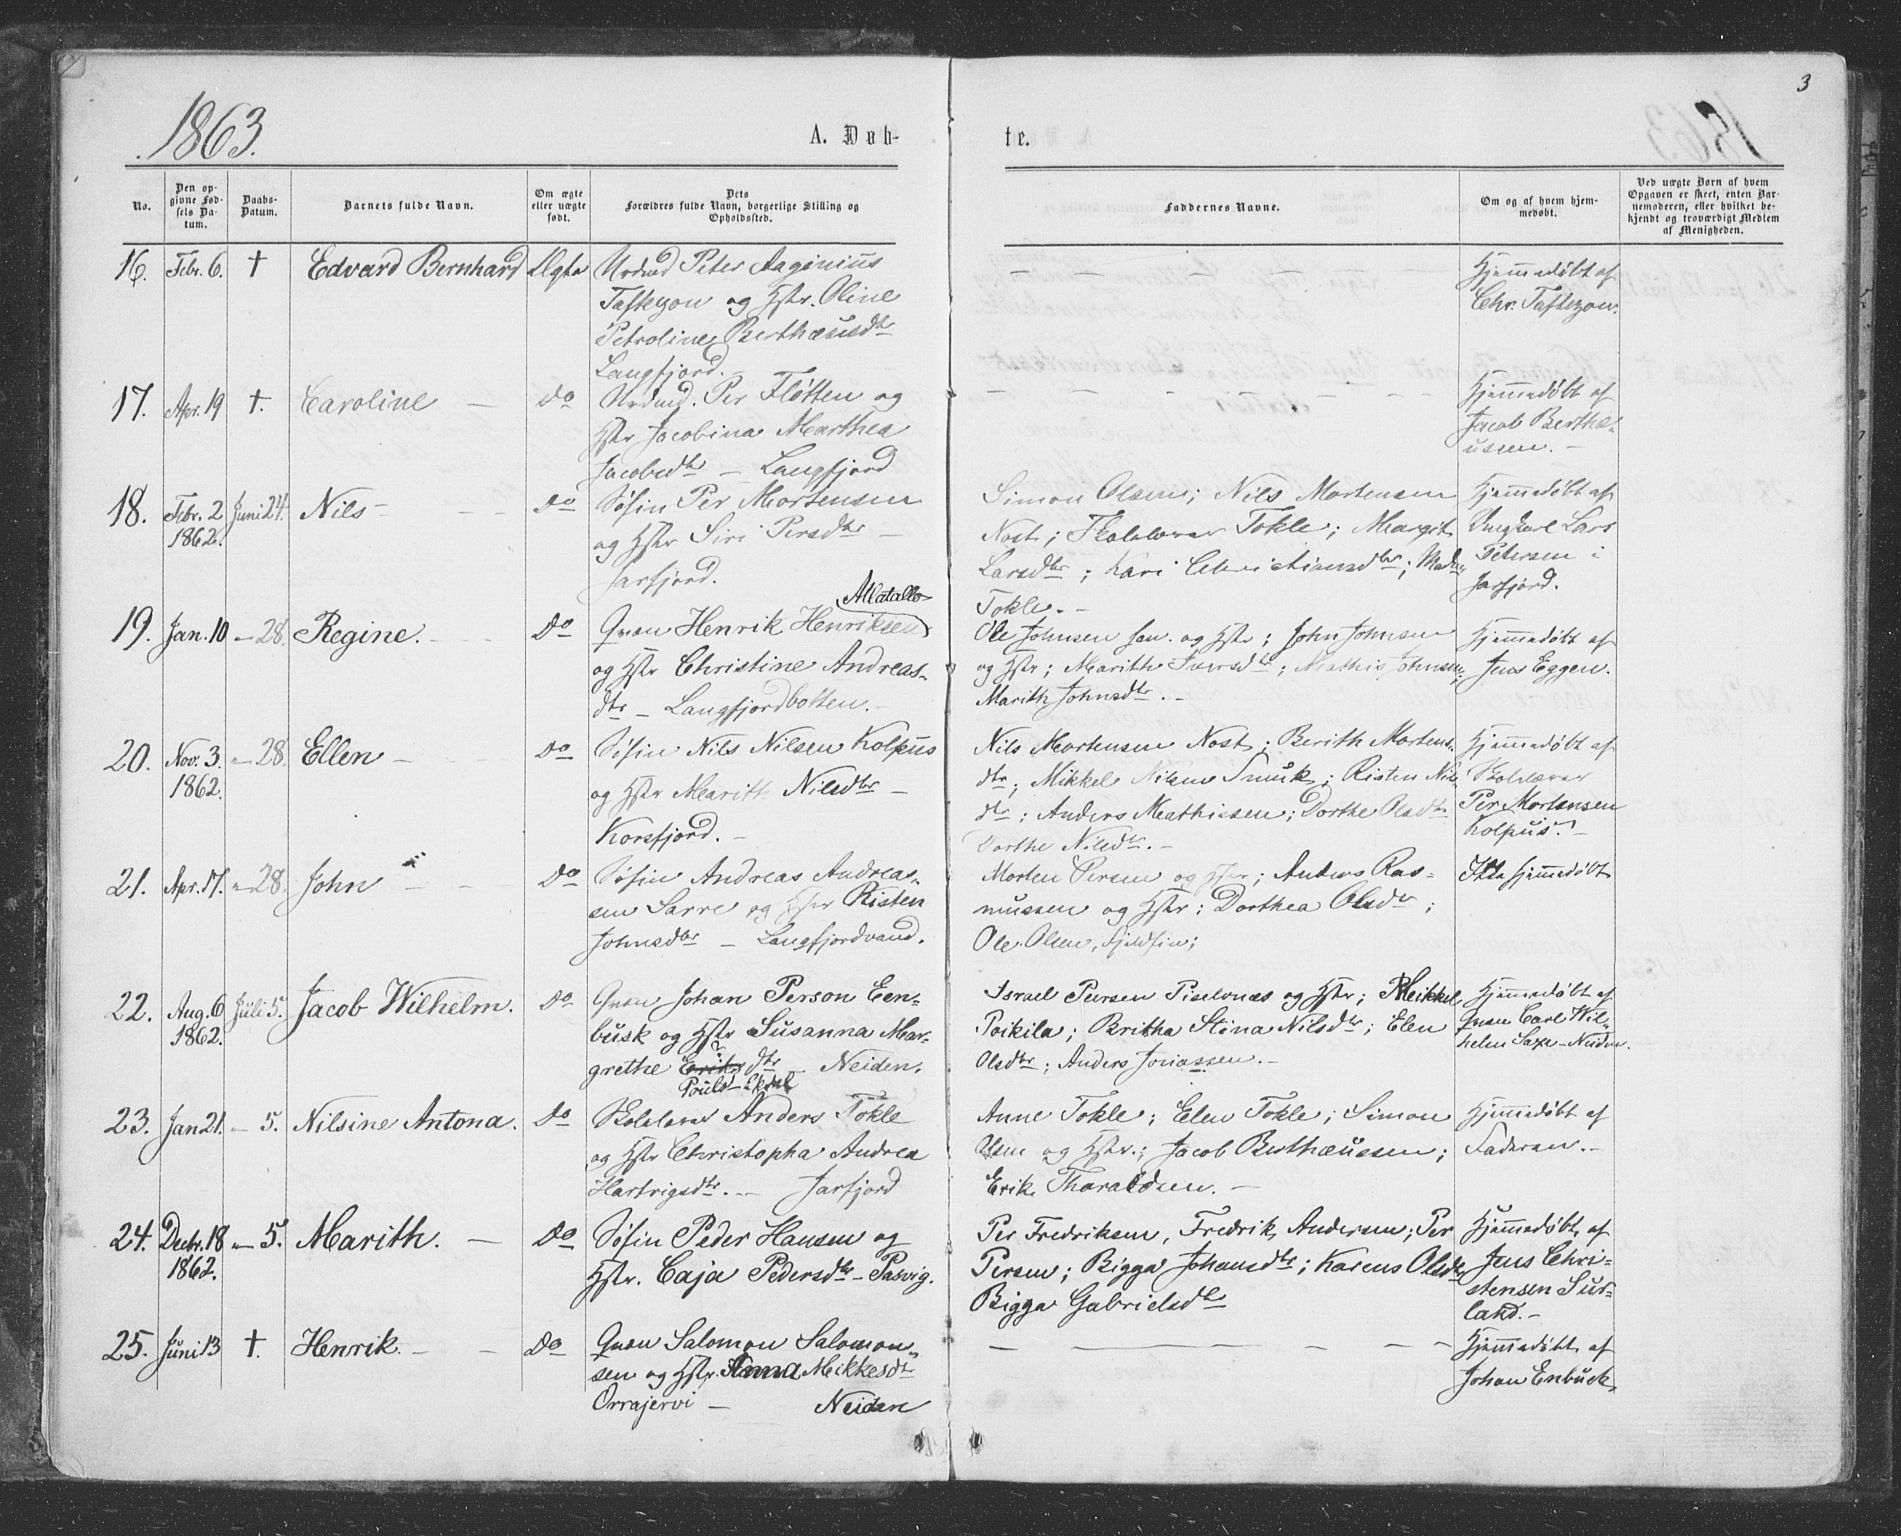 3
1863.
A. Døb-
te.
No.
Den op-
givne Fød-
sels Da-
tum.
Daabs-
Datum.
Barnets fulde Navn.
Om ægte
eller uægte
født.
Dets
Forældres fulde Navn, borgerlige Stilling og
Opholdssted.
Faddernes Navne.
Om og af hvem hjem-
medøbt.
Ved uægte Børn af hvem
Opgaven er skeet, enten Bar-
nemoderen, eller hvilket be-
kjendt og troværdigt Medlem
af Menigheden.
16. Febr. 6. † Edvard Bernhard Ægte
Peter Aaginius
Taftezon og Hstr. Oline
Petroline Berthæusdtr
Langfjord.
Hjemmedøbt af
Chr. Taftezon.
17. Apr. 19 †. Caroline Do
Per Fløtten og
Hstr Jacobina Marthea
Jacobsdtr — Langfjord
Hjemmedøbt af
Jacob Berthæ-
ussen. —
18. Febr. 2 1862. Juni 24. Nils — Do
Søfin Per Mortensen
og Hstr Siri Persdtr —
Jarfjord.
Simon Olsen; Nils Mortensen
Nost; Skolelærer Tokle; Margit
Larsdtr; Kari Christiansdtr; Mad.
Tokle. —
Hjemmedøbt af
Ungkarl Lars
Petersen i
Jarfjord.
19. Jan. 10 — 28. Regine. — Do
Qvæn Henrik Henriksen Matallo-
og Hstr Christine Andreas-
dtr — Langfjordbotten. —
Ole Johnsen sen. og Hstr; John Johnsen
og Hstr; Marith Iversdtr; Mathis Johnsen;
Marith Johnsdtr. —
Hjemmedøbt af
Jens Eggen.
20. Nov. 3. 1862. — 28. Ellen — Do
Søfin Nils Nilsen Kolpus
og Hstr Marith Nilsdtr —
Korsfjord. —
Nils Mortensen Nost; Berith Mortens-
dtr; Mikkel Nilsen Smuk; Risten Nils-
dtr; Anders Mathissen; Dorthe Olsdtr
Dorthe Nilsdtr. —
Hjemmedøbt af
Skolelærer
Per Mortensen
Kolpus. —
21. Apr. 17. — 28. John — Do
Søfin Andreas Andreas-
sen Sarre og Hstr Risten
Johnsdtr — Langfjordvand.
Morten Persen og Hstr; Anders Ras-
mussen og Hstr; Dorthea Olsdtr;
Ole Olsen, Fjeldfin;
Ikke hjemmedøbt
22. Aug. 6 1862. Juli 5. Jacob Wilhelm. Do
Qvæn Johan Person Een-
busk og Hstr Susanna Mar-
grethe Eriksdtr — Neiden.
Pouls- Ekdal
Israel Persen Piselvnæs og Hstr; Meikkel
Poikila; Britha Stina Nilsdtr; Elen
Olsdtr; Anders Jonassen. —
Hjemmedøbt af
Qvæn Carl Wil-
helm Saxe - Neiden.
23. Jan 21. — 5. Nilsine Antona. Do
Skolelærer Anders Tokle
og Hstr Christopha Andrea
Hartvigsdtr. — Jarfjord
Anne Tokle; Elen Tokle; Simon
Olsen og Hstr.; Jacob Berthæussen;
Erik Tharaldsen. —
Hjemmedøbt af
Faderen. —
24. Decbr. 18 1862. — 5. Marith. — Do
Søfin Peder Hansen og
Hstr. Caja Pedersdtr — Pasvig.
Per Fredriksen, Fredrik Andersen; Per
Persen; Bigga Johansdtr; Karens Olsdtr
Bigga Gabrielsdtr
Hjemmedøbt af
Jens Chri-
stensen Sur-
land. —
25. Juni 13 †. Henrik. — Do
Qvæn Salomon Salomon-
sen og Hstr. Anna Mikkesdtr
Orrajervi — Neiden
Hjemmedøbt af
Johan Enbusk.